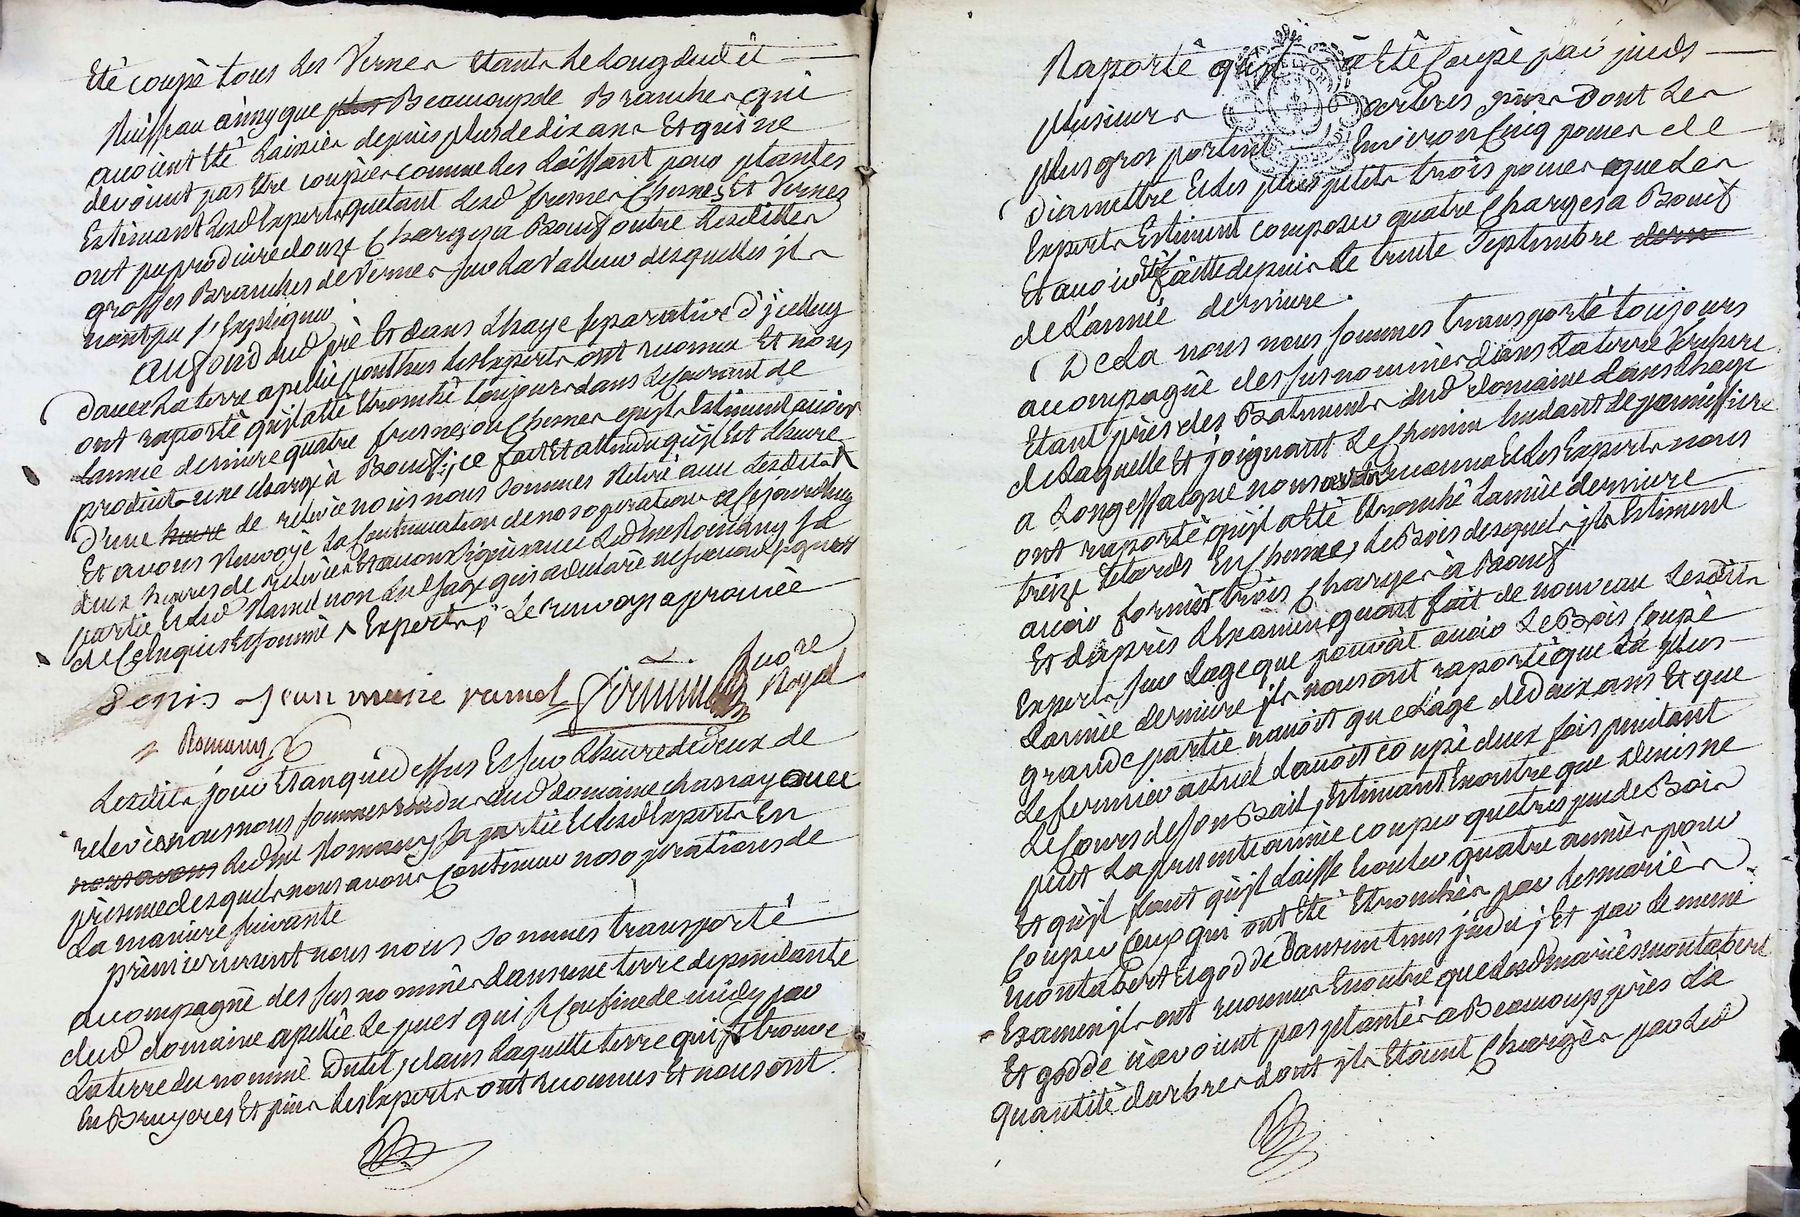 Eté coupé tous les Vernes etants le long dud it
Ruisseau ainsy que plus Beaucoup de Branches qui
avoient été laissés depuis plus de dix ans Et qui ne
devoient pas être coupées comme les laissant pour plantes
Estimant lesd Experts que tant lesd fresnes Chesnes Et Vernes
ont pu produire douze Charges a Boeuf outre lesdittes
grosses Branches de Vernes sur la Valleur desquelles ils
nont pu s'Expliquer
Au fond dud pré Et dans L'haye separative d'jcelluy
davec la terre apellée ponthus les Experts ont reconnu Et nous
ont raporté qu'jl a été Etronché toujours dans le Courant de
Lannée derniere quatre fresnes ou Chesnes qu'jls Estiment avoir
produits une charge à Boeuf; ce fait Et attendu qu'jl Est L'heure
d'une heure de relevée nous nous sommes Retiré avec lesdits
Et avons Renvoyé la Continuation de nos operations a Cejourdhuy
deux heures de relevée Et avons signé avec Led me Romany sa
partie Et led Ramel non Led Sage qui a declaré ne scavoir signer
de Ce Enquis Et sommé Experts; Le renvoy aprouvée
Denis Jean marie ramel
Royal
Romany
Lesdits jour Et an que dessus Et sur L'heure de deux de
relevée nous nous sommes rendus aud domaine charray avec
nous avons Led me Romany sa partie Et lesd Experts En
présence desquels nous avons Continué nos opérations de
La maniere suivante
premierement nous nous sommes transporté
acompagné des susnommés dans une terre dependante
dud domaine apellée Le puer qui se Confine de midy par
La terre du nommé Dutit, dans Laquelle terre qui se trouve
En Bruyeres Et pins les Experts ont reconnus Et nous ont
Raporté qu'jl a été Coupé par pieds
plusieurs arbres pins dont Les
plus gros portent Environ Cinq pouces de
Diamettre Et les plus petits trois pouces que les
Experts Estiment composer quatre Charges a Boeuf
Et avoir été faitte depuis Le trente Septembre dern
de L'année derniere.
De La nous nous sommes transporté toujours
acompagné des susnommés dans La terre
Etant près des Batiments dud domaine dans L'haye
de Laquelle Et joignant Le Chemin tendant de
a Longessaigne nous avons reconnu Et les Experts nous
ont raporté qu'jl a été Etronché Lannée derniere
treize tetards En Chesnes, Le Bois desquels jls Estiment
avoir formé trois Charges à Boeuf
Et d'après L'Examen qu'ont fait de nouveau Lesdits
Experts sur Lage que pouvoit avoir Le Bois Coupé
Lannée derniere jls nous ont raporté que La plus
grande partie n'avoit que L'age de deux ans Et que
Le fermier actuel L'avoit coupé deux fois pendant
Le Cours de son Bail, Estimant En outre que Denis ne
peut La presente année couper que tres peu de Bois
Et qu'jl faut qu'jl Laisse Ecouler quatre années pour
Couper Ceux qui ont Eté Etronchés par Les mariés
montabert Et godde Dans un tems jndu; Et par Le meme
Examen jls ont reconnu En outre que Lesd mariés montabert
Et godde n'avoient pas planté a Beaucoup près La
quantité d'arbres dont jls Etoient Chargés par Led